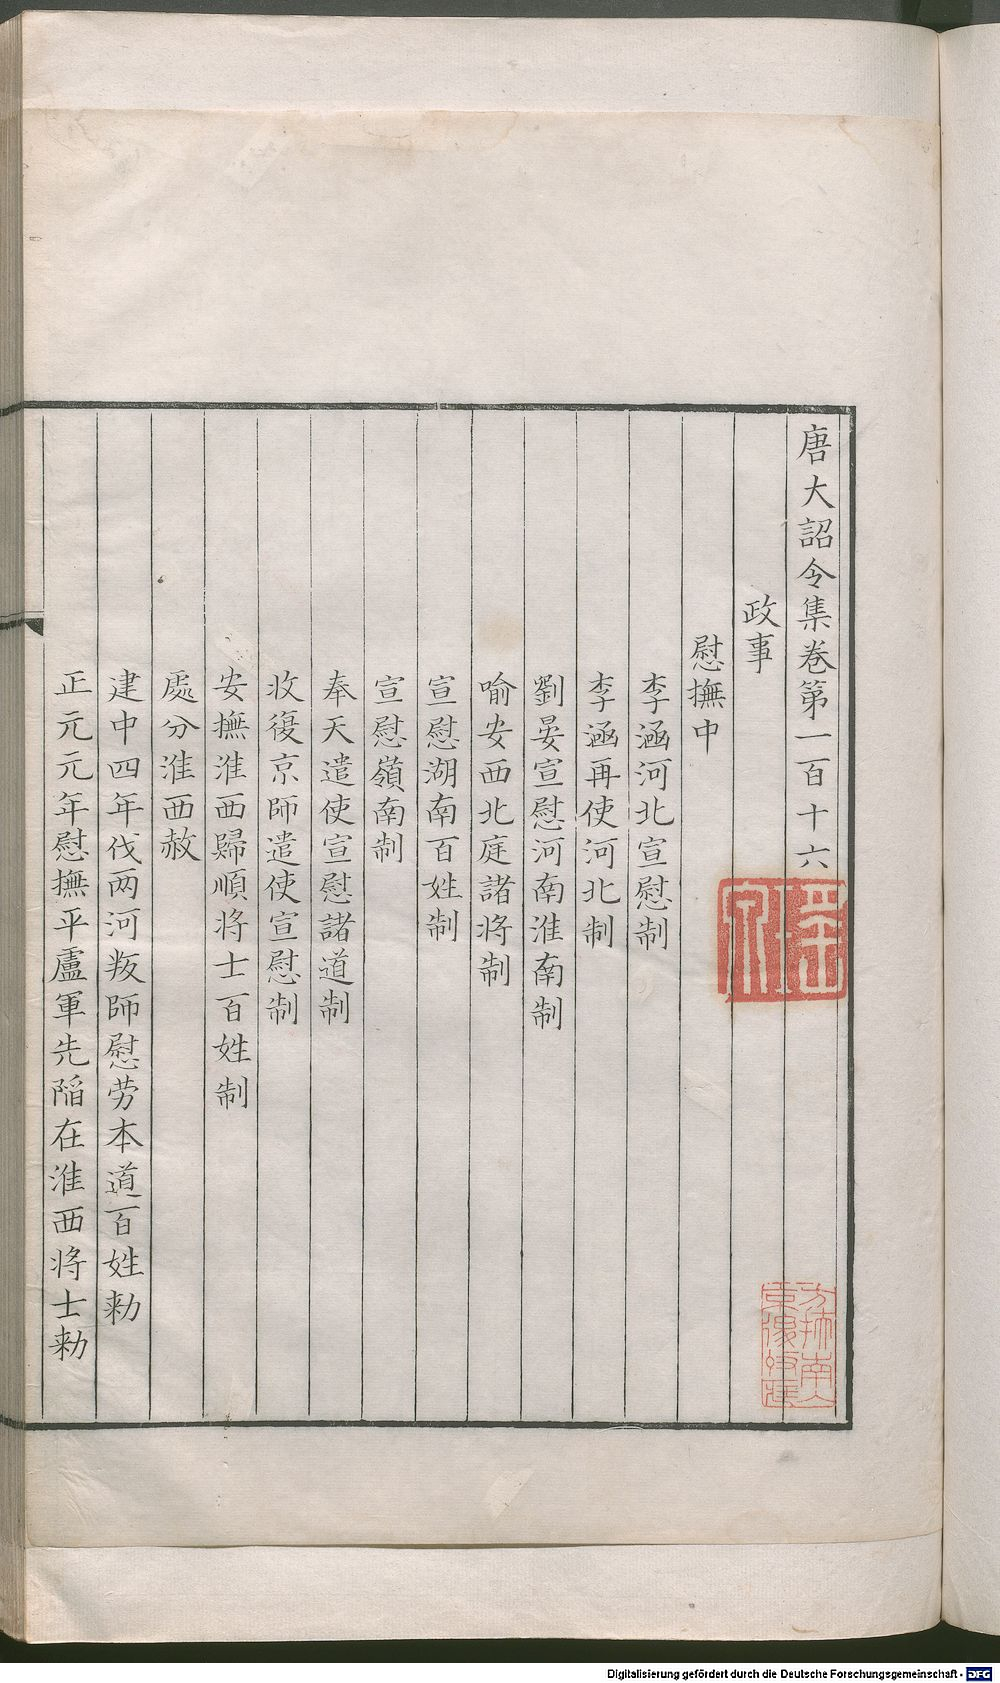 唐大詔令集卷第一百十六
政事
慰撫中
李涵河北宣慰制
李涵再使河北制
劉晏宣慰河南淮南制
喻安西北庭諸將制
宣慰湖南百姓制
宣慰嶺南制
奉天遣使宣慰諸道制
收復京師遣使宣慰制
安撫淮西歸順將士百姓制
處分淮西赦
建中四年伐两河叛師慰劳本道百姓勑
正元元年慰撫平盧軍先陷在淮西將士勑
Digitalisierung gefördert durch die Deutsche Forschungsgemeinschaft - DFG